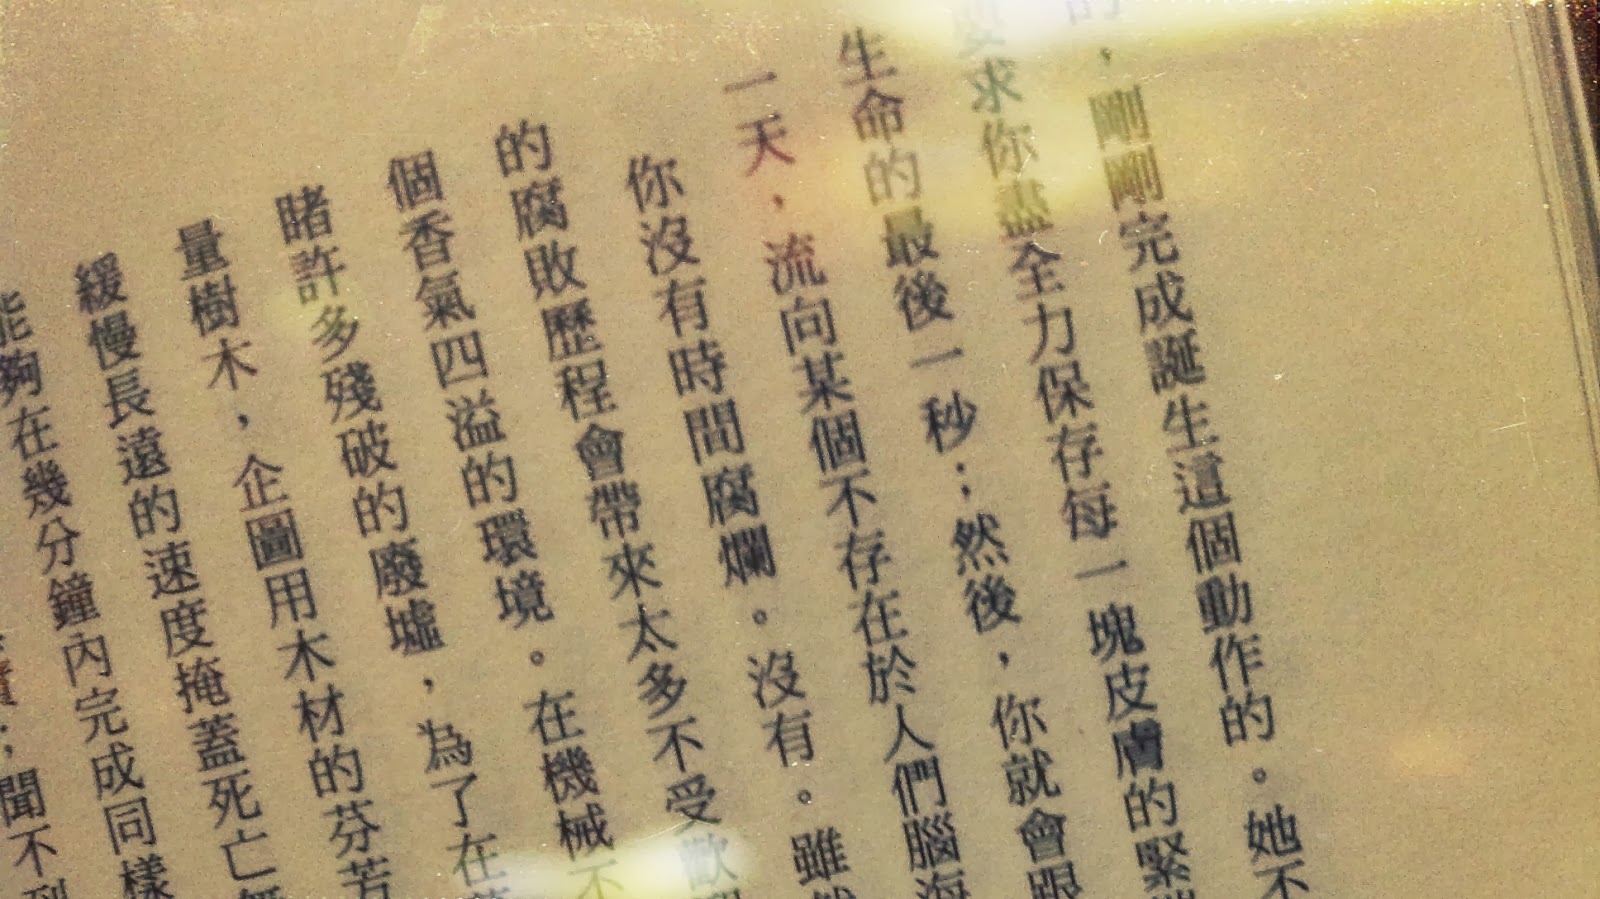 的，剛剛完成誕生這個動作的。她不
要求你盡全力保存每一塊皮膚的緊
生命的最後一秒；然後，你就會跟
一天，流向某個不存在於人們腦海
你沒有時間腐爛。沒有。雖
的腐敗歷程會帶來太多不受歡
個香氣四溢的環境。在機械不
睹許多殘破的廢墟，為了在
量樹木，企圖用木材的芬芳
緩慢長遠的速度掩蓋死亡
能夠在幾分鐘內完成同樣
；聞不到